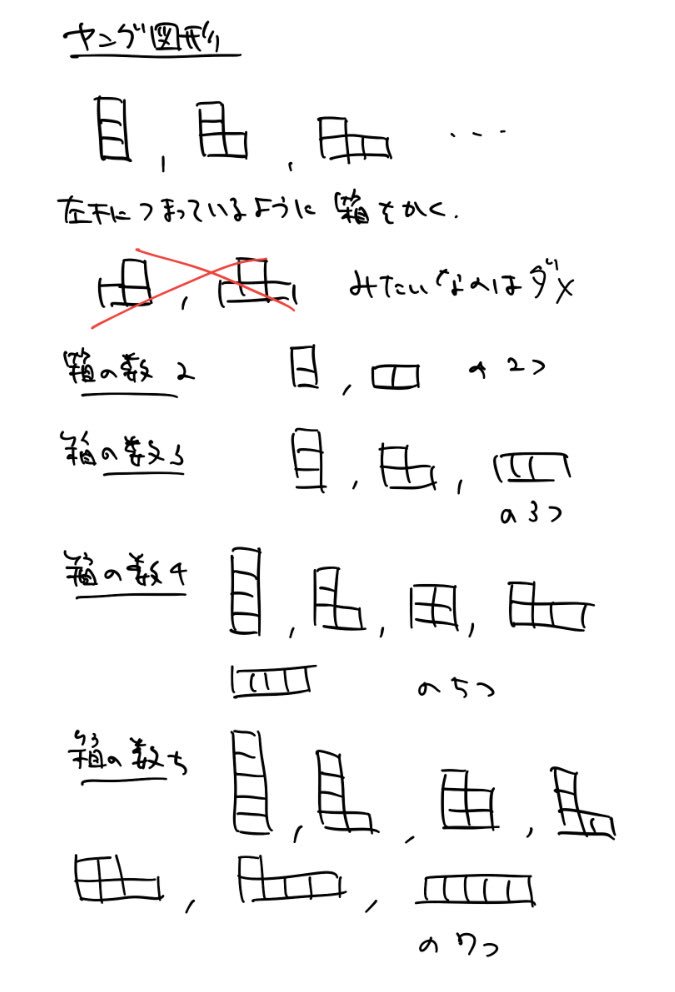 ヤング図形
, , ...
左下につまっているように箱をかく.
, みたいなのはダメ
箱の数2 , の2つ
箱の数3 , ,
の3つ
箱の数4 , , ,
の5つ
箱の数5 , , ,
, ,
の7つ